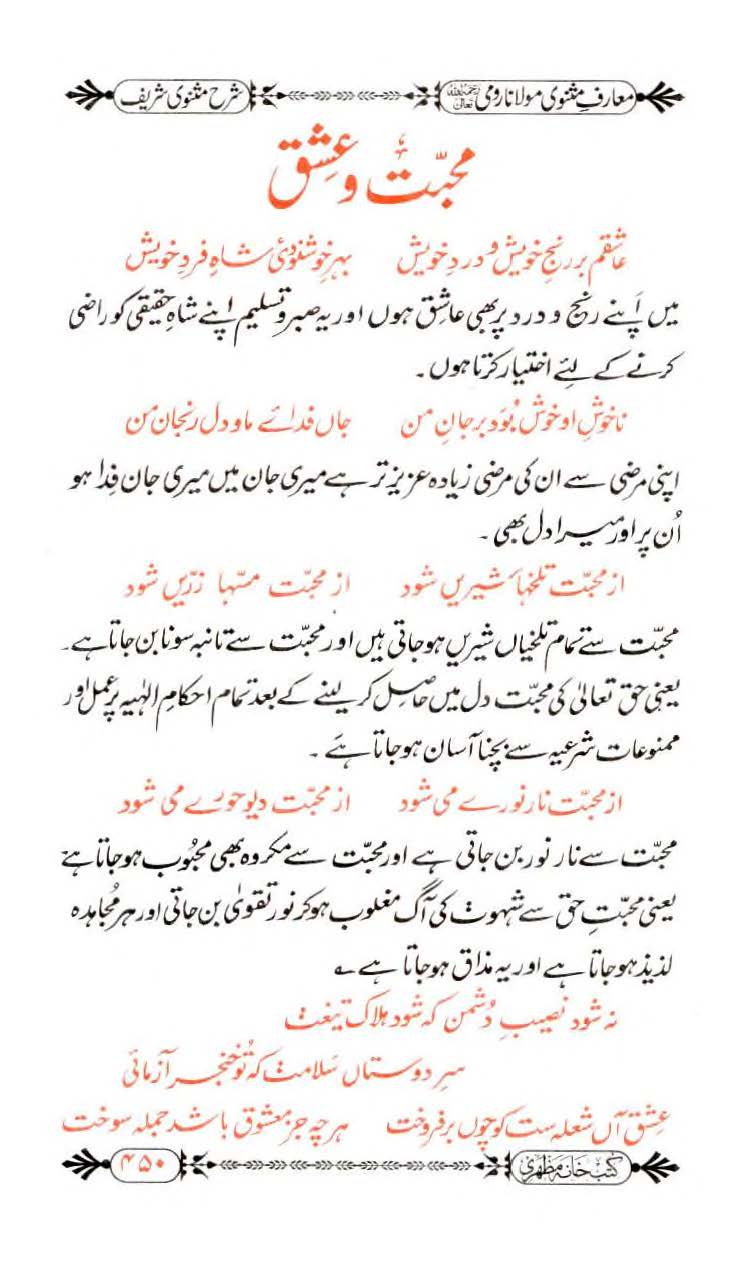 معارفِ مثنوی مولانا رومی رحمۃ اللہ تعالیٰ شرح مثنوی شریف
محبّت و عشق
عاشقم بر رنجِ خویش و دردِ خویش بہرِ خوشنودیٔ شاہِ فردِ خویش
میں اَپنے رنج و درد پر بھی عاشق ہوں اور یہ صبر و تسلیم اپنے شاہِ حقیقی کو راضی
کرنے کے لئے اختیار کرتا ہوں۔
ناخوشِ او خوش بُوَد بر جانِ من جاں فدائے ما و دل رنجان من
اپنی مرضی سے ان کی مرضی زیادہ عزیز تر ہے میری جان میں میری جان فِدا ہو
اُن پر اور میرا دل بھی۔
از محبّت تلخہا شیریں شود از محبّت مسّہا زرّیں شود
محبّت سے تمام تلخیاں شیریں ہو جاتی ہیں اور محبّت سے تانبہ سونا بن جاتا ہے۔
یعنی حق تعالیٰ کی محبّت دل میں حاصل کر لینے کے بعد تمام احکامِ الٰہیہ پر عمل اور
ممنوعات شرعیہ سے بچنا آسان ہو جاتا ہے۔
از محبّت نار نورے می شود از محبّت دیو حورے می شود
محبّت سے نار نور بن جاتی ہے اور محبّت سے مکروہ بھی محبُوب ہو جاتا ہے
یعنی محبّتِ حق سے شہوت کی آگ مغلوب ہو کر نور تقویٰ بن جاتی اور ہر مُجاہدہ
لذیذ ہو جاتا ہے اور یہ مذاق ہو جاتا ہے ؎
نہ شود نصیبِ دُشمن کہ شود ہلاک تیغت
سرِ دوستاں سَلامت کہ تُو خنجر آزمائی
عِشق آں شعلہ ست کو چوں برفروخت ہر چہ جز معشوق باشد جملہ سوخت
کتب خانہ مظہری ۴۵۰